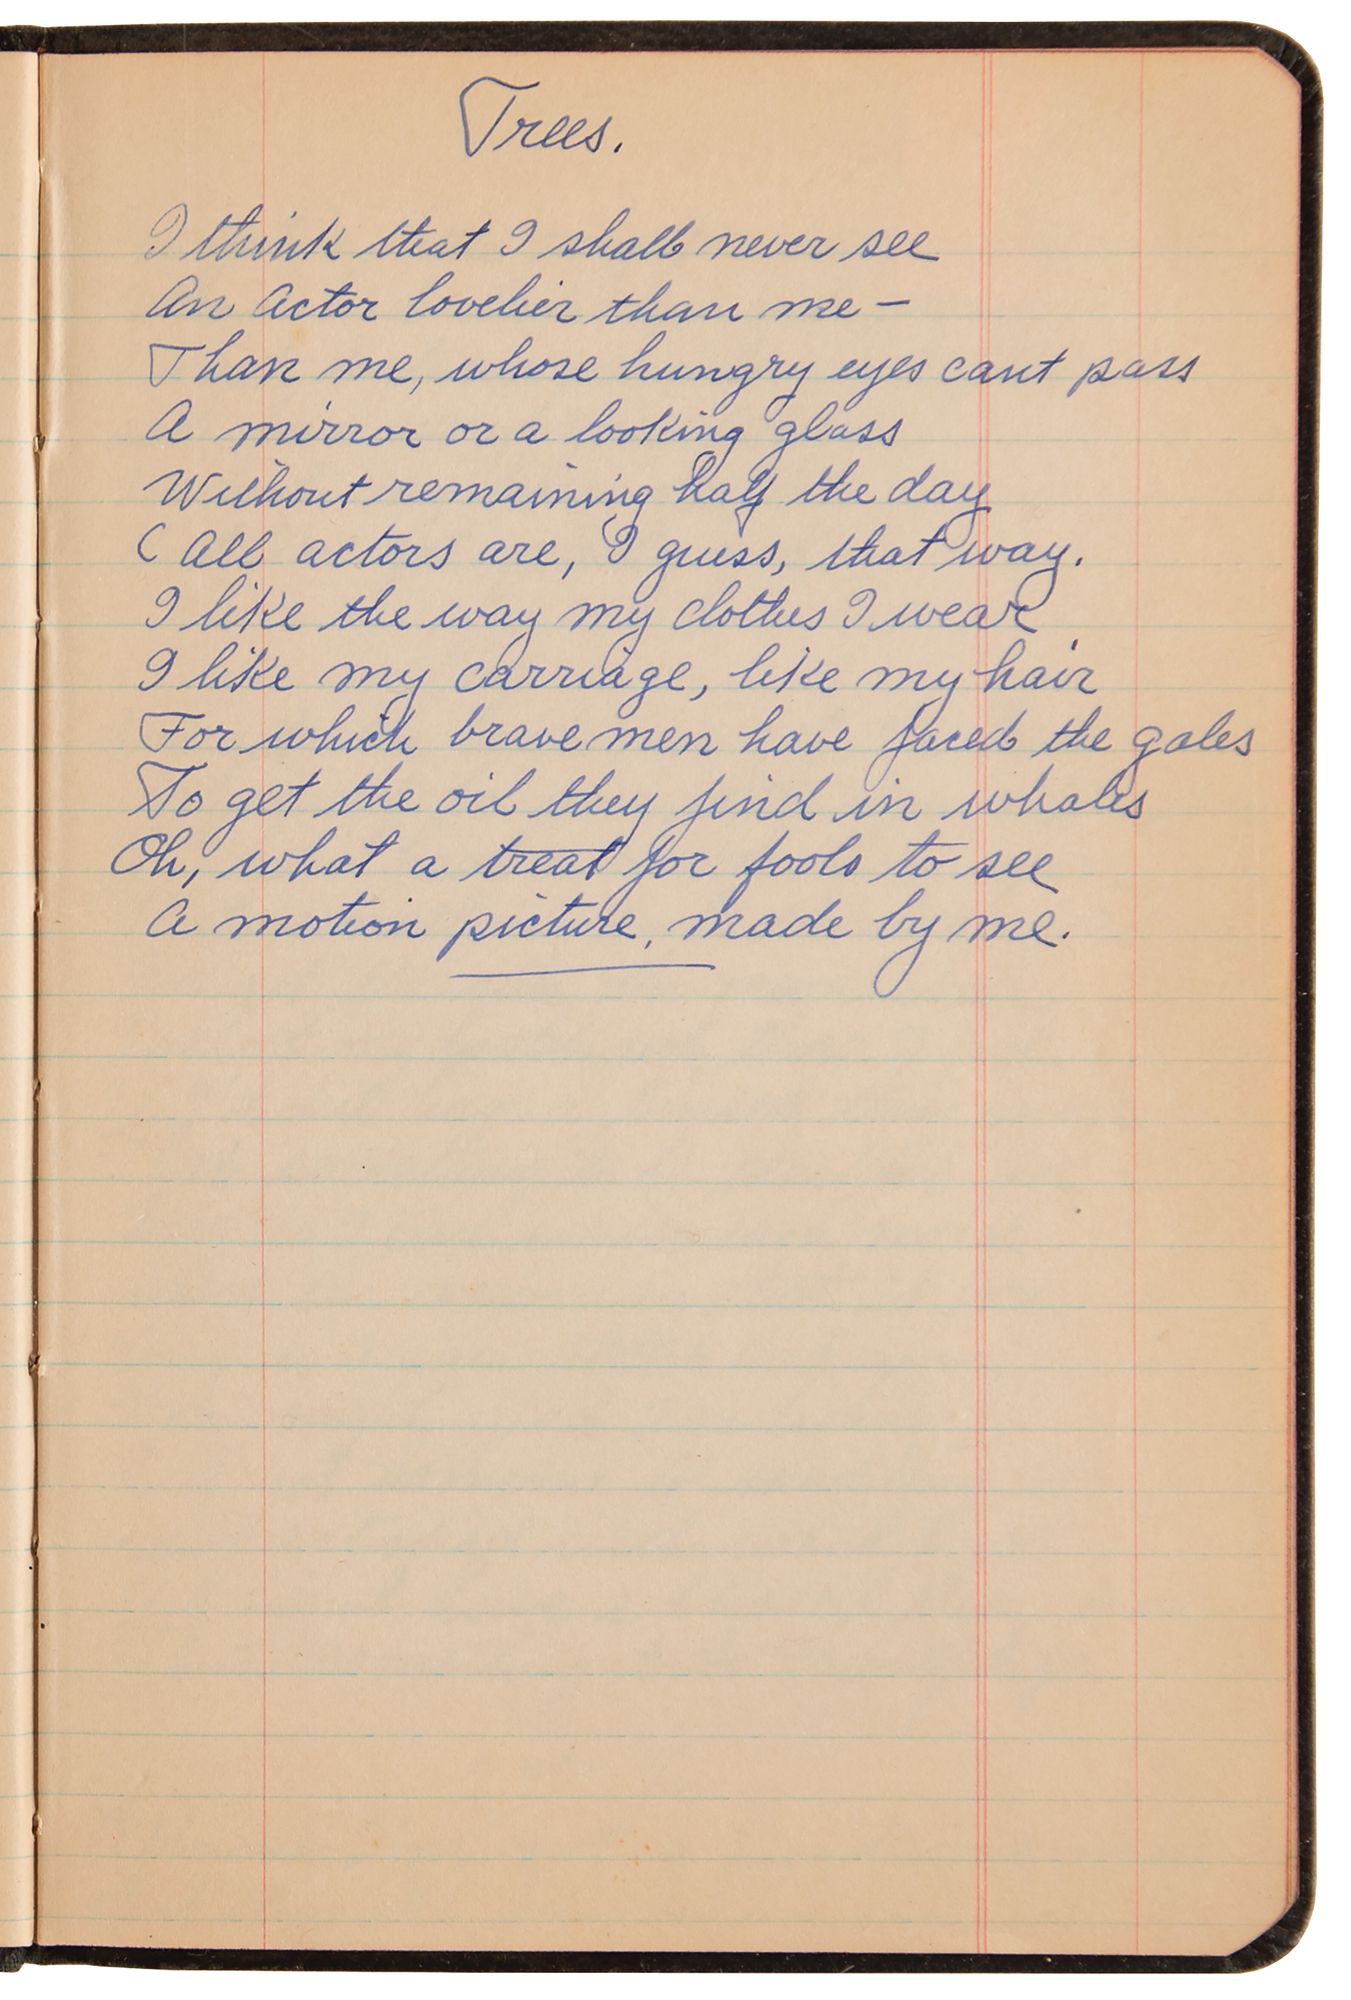 Trees.
I think that I shall never see
An actor lovelier than me —
Than me, whose hungry eyes cant pass
A mirror or a looking glass
Without remaining half the day
( All actors are, I guess, that way.
I like the way my clothes I wear
I like my carriage, like my hair
For which brave men have faced the gales
To get the oil they find in whales
Oh, what a treat for fools to see
A motion picture, made by me.